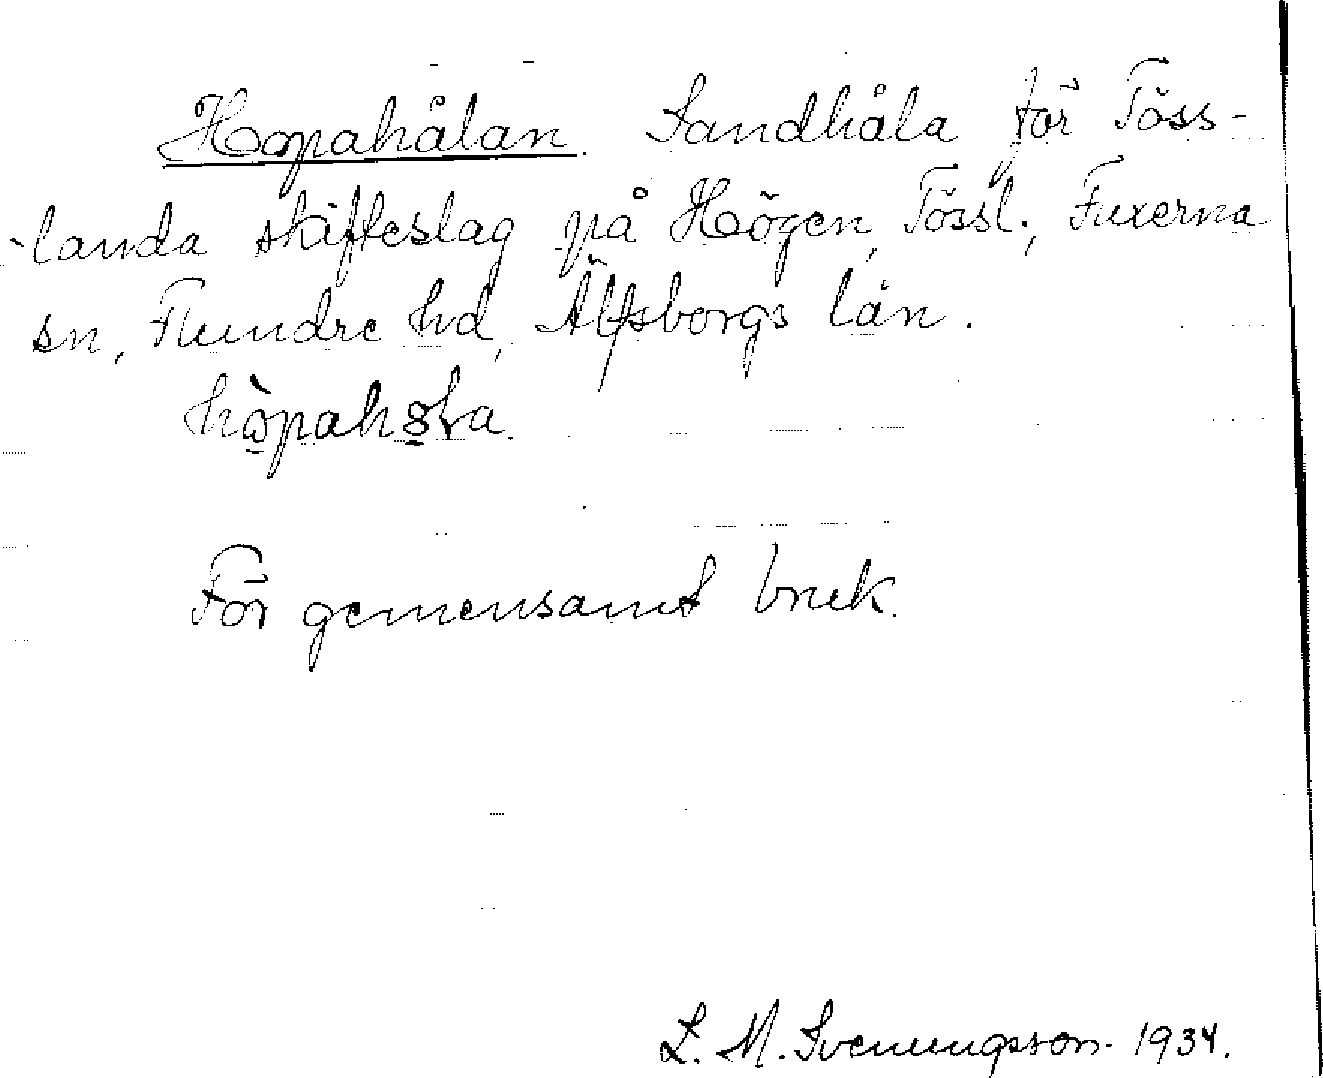 Hopahålan. Sandhåla för Töss-
landa skifteslag på Högen, Tössl., Fuxerna
sn, Flundre hd, Älfsborgs län.
hò̱paho̱ḷa.
För gemensamt bruk.
L. M. Svenungsson. 1934.